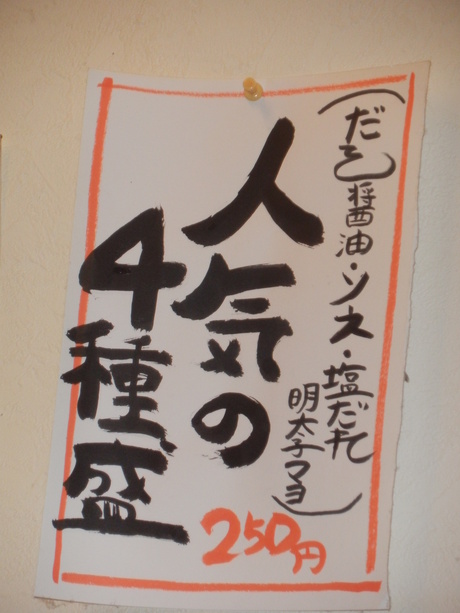 (だし醤油・ソース・塩だれ
明太子マヨ)
人気の
4種盛
250円